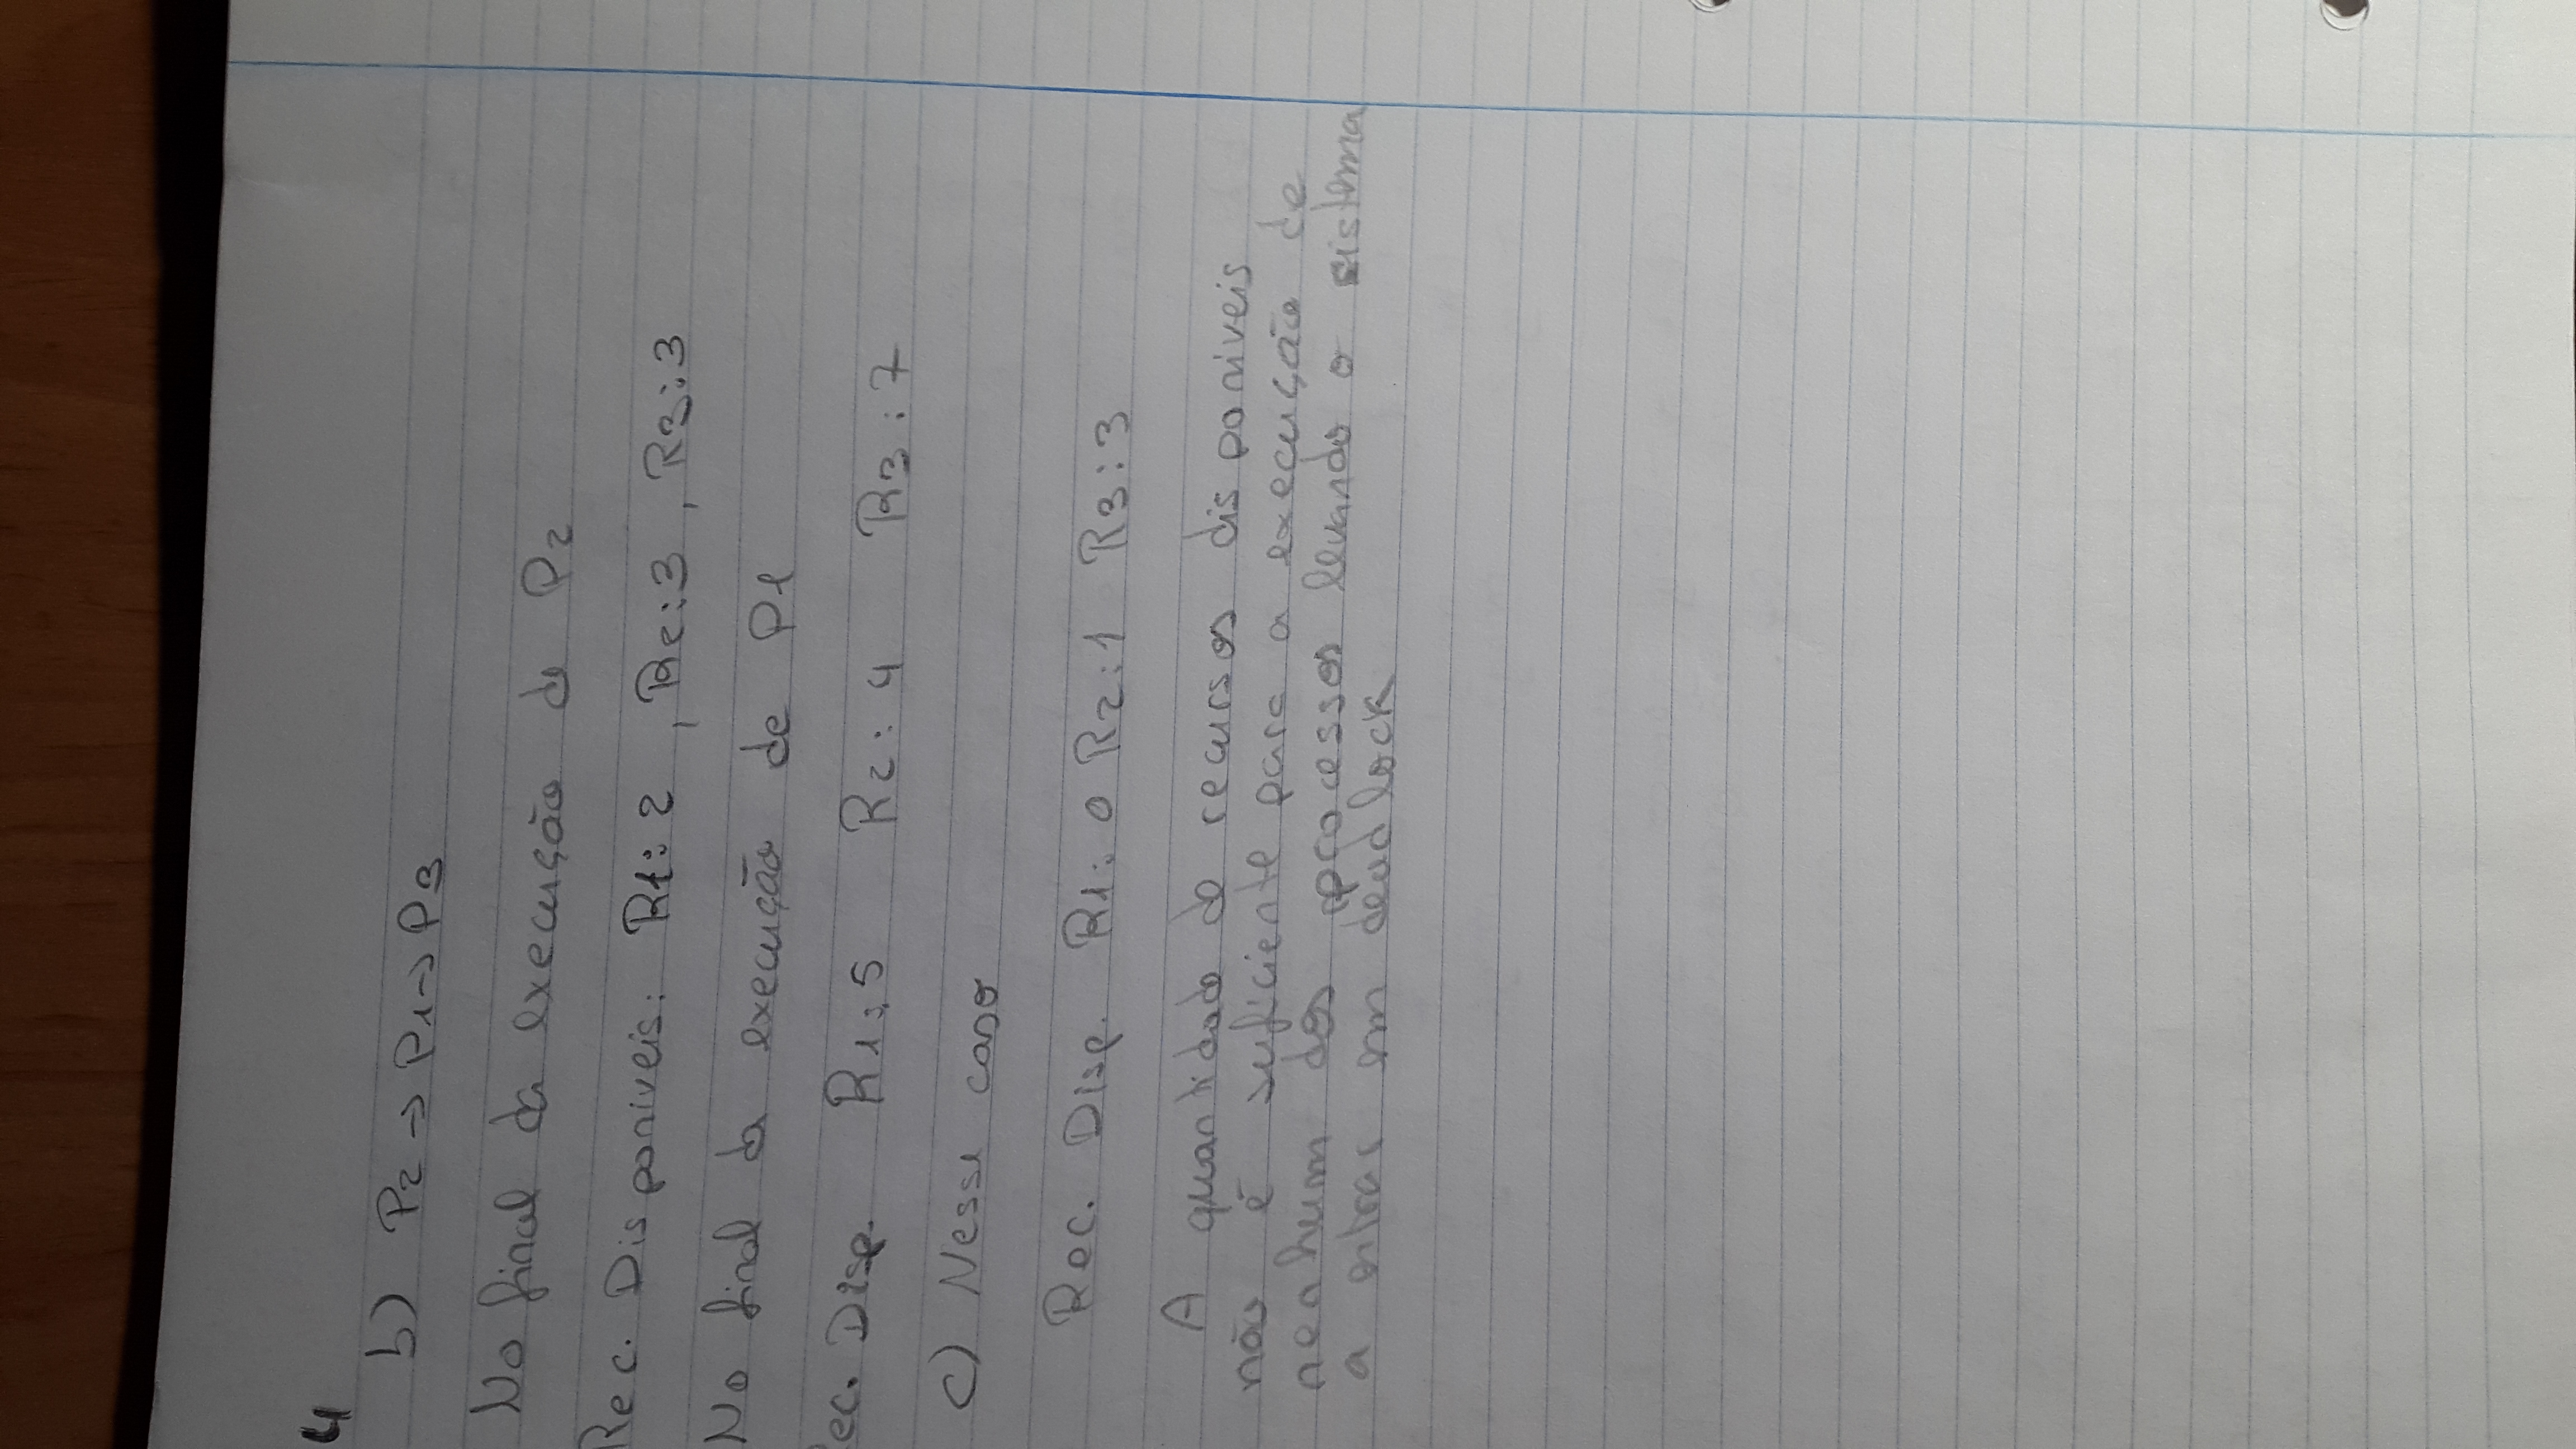 4
b) P2 → P1 → P3
No final da execução de P2
Rec. Disponiveis: R1: 2 , R2: 3 , R3: 3
No final da execução de P1
ec. Disp. R1: 5 R2: 4 R3: 7
c) Nesse caso
Rec. Disp. R1: 0 R2: 1 R3: 3
A quantidade de recursos disponiveis
não é suficiente para a execução de
nenhum dos processos levando o sistema
a entrar em deadlock